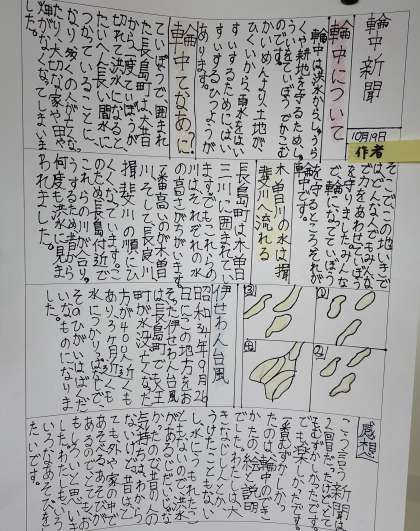 輪中新聞
10月19日
作者
輪中について
輪中は洪水からしゅうら
くや耕地を守るため、
ういをていぼうでかこむ
のです。
かいめんより土地が
ひくいから、雨水をはい
すいするためには、はい
すいするひつようが
あります。
輪中てなあに
ていぼうで囲まれ
た長島町は、大昔
から一度ていぼうが
切れて洪水になると
たいへん長い間水に
つかっていることに
なり、多くの人がなくなっ
たり、大切な家や田や
畑がなくなってしまいま
した。
そこでこの地いきで
はどんな人でもみんな
で力をあわせてていぼう
を守りました。みんな
で輪になってていぼう
を守るところ、それが
輪中です。
木曽川の水は揖
斐川へ流れる
長島町は、木曽
三川に囲まれてい
ますでもこれらの
川はそれぞれの水
の高さがちがいます。
一番高いのが木曽
川、そして長良川
揖斐川の順にひ
くくなっています。こ
のため、長島付近で
これらの川が合りゅ
うするため昔から
何度も洪水に見ま
われました。
伊せわん台風
昭和34年9月26
日にこの地方をお
そった伊せわん台風
は、長島町でぼぜん
町が水没してなくなった
方が400人近くも
あり3ヶ月近くも
水につかりっぱなしで
そのひがいはばくだ
いなものになりま
した。
感想
こう言う新聞
2回目だったけど
でもむずかしかったです
でも楽しかったです。
一番むずかしかっ
たのは、輪中のでき
かたの絵と説明
でした。わたしは、大
きなさいなんとか
うけたこともない
し、水につかったことな
どもないので洪水
があるなんてしらな
かったのでひ害の人の
気持ちはよくわから
ないです。昔はとっ
ても外や家の中で
あそべるあそびが
あるのでいがいとっても
おもしろいと思いま
した。わたしもいろ
いろなあそびをし
たいです。